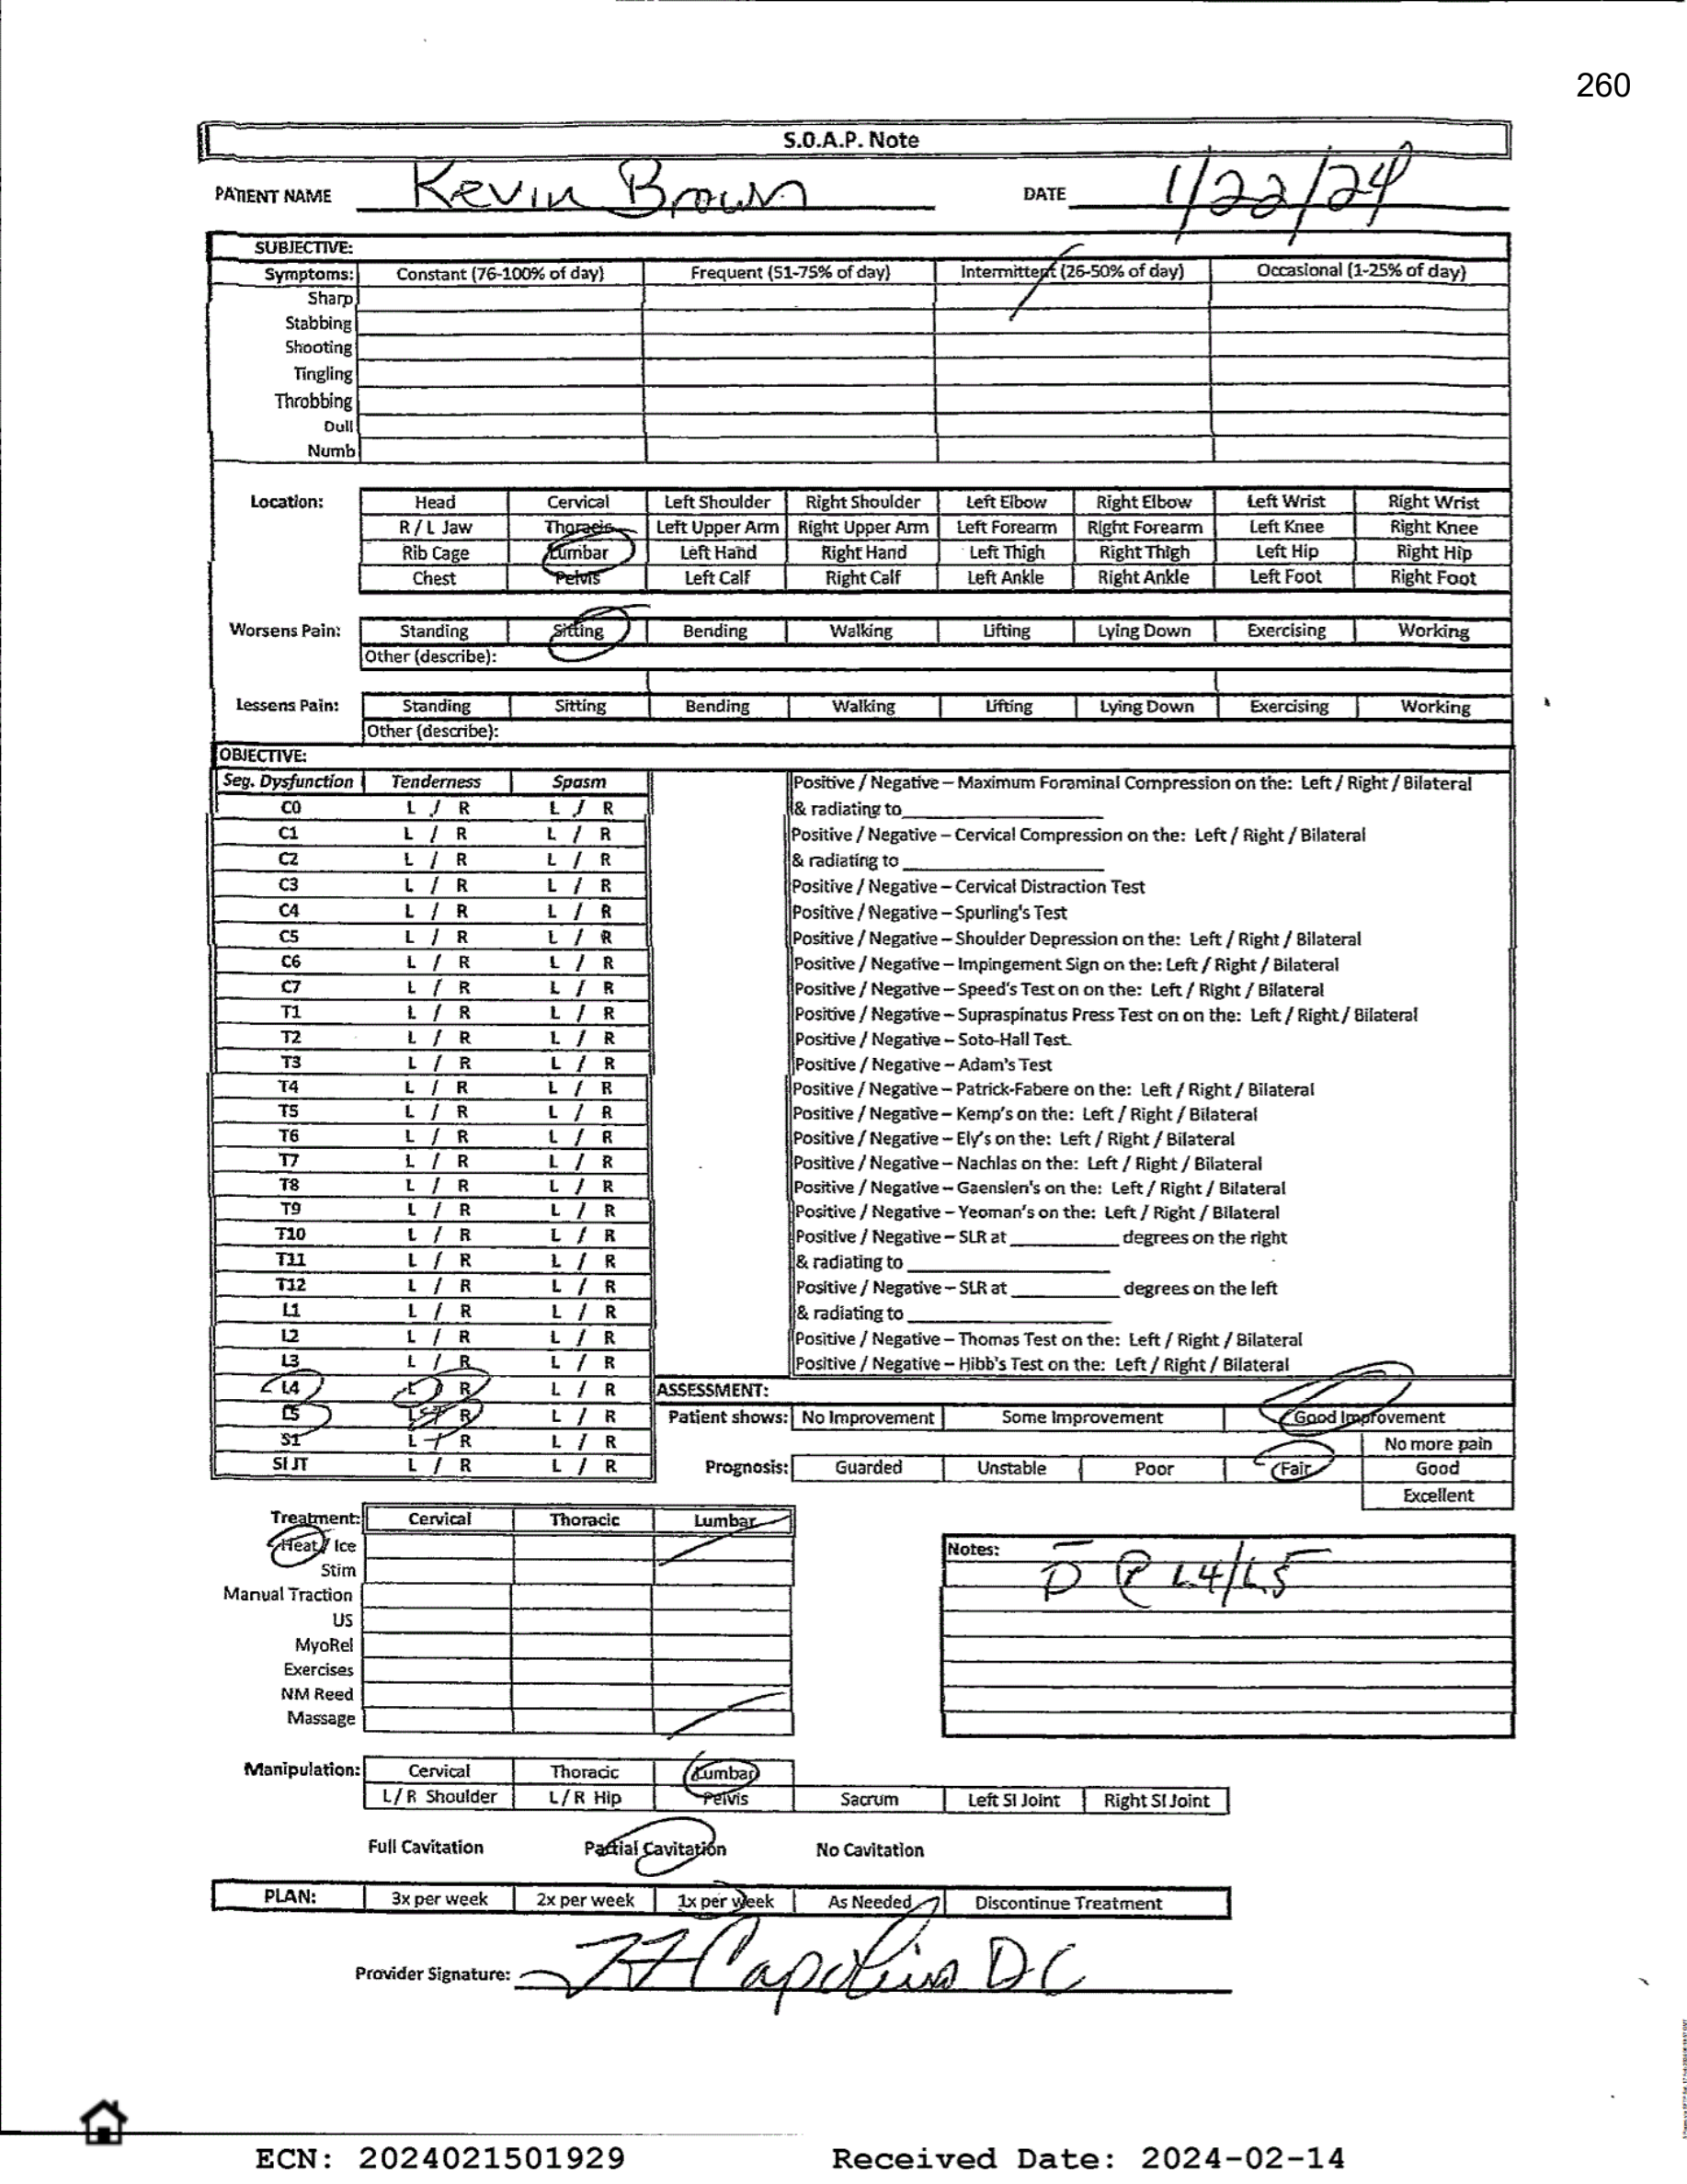 260
S.O.A.P. Note
PATIENT NAME Kevin Brown DATE 1/22/24
SUBJECTIVE:
Symptoms: Constant (76-100% of day) Frequent (51-75% of day) Intermittent (26-50% of day) Occasional (1-25% of day)
Sharp
Stabbing
Shooting
Tingling
Throbbing
Dull
Numb
Location: Head Cervical Left Shoulder Right Shoulder Left Elbow Right Elbow Left Wrist Right Wrist
R / L Jaw Thoracic Left Upper Arm Right Upper Arm Left Forearm Right Forearm Left Knee Right Knee
Rib Cage Lumbar Left Hand Right Hand Left Thigh Right Thigh Left Hip Right Hip
Chest Pelvis Left Calf Right Calf Left Ankle Right Ankle Left Foot Right Foot
Worsens Pain: Standing Sitting Bending Walking Lifting Lying Down Exercising Working
Other (describe):
Lessens Pain: Standing Sitting Bending Walking Lifting Lying Down Exercising Working
Other (describe):
OBJECTIVE:
Seg. Dysfunction Tenderness Spasm Positive / Negative – Maximum Foraminal Compression on the: Left / Right / Bilateral
C0 L / R L / R & radiating to
C1 L / R L / R Positive / Negative – Cervical Compression on the: Left / Right / Bilateral
C2 L / R L / R & radiating to
C3 L / R L / R Positive / Negative – Cervical Distraction Test
C4 L / R L / R Positive / Negative – Spurling's Test
C5 L / R L / R Positive / Negative – Shoulder Depression on the: Left / Right / Bilateral
C6 L / R L / R Positive / Negative – Impingement Sign on the: Left / Right / Bilateral
C7 L / R L / R Positive / Negative – Speed's Test on on the: Left / Right / Bilateral
T1 L / R L / R Positive / Negative – Supraspinatus Press Test on on the: Left / Right / Bilateral
T2 L / R L / R Positive / Negative – Soto-Hall Test.
T3 L / R L / R Positive / Negative – Adam's Test
T4 L / R L / R Positive / Negative – Patrick-Fabere on the: Left / Right / Bilateral
T5 L / R L / R Positive / Negative – Kemp's on the: Left / Right / Bilateral
T6 L / R L / R Positive / Negative – Ely's on the: Left / Right / Bilateral
T7 L / R L / R Positive / Negative – Nachlas on the: Left / Right / Bilateral
T8 L / R L / R Positive / Negative – Gaenslen's on the: Left / Right / Bilateral
T9 L / R L / R Positive / Negative – Yeoman's on the: Left / Right / Bilateral
T10 L / R L / R Positive / Negative – SLR at degrees on the right
T11 L / R L / R & radiating to
T12 L / R L / R Positive / Negative – SLR at degrees on the left
L1 L / R L / R & radiating to
L2 L / R L / R Positive / Negative – Thomas Test on the: Left / Right / Bilateral
L3 L / R L / R Positive / Negative – Hibb's Test on the: Left / Right / Bilateral
L4 L / R L / R ASSESSMENT:
L5 L / R L / R Patient shows: No Improvement Some Improvement Good Improvement
S1 L / R L / R No more pain
SI JT L / R L / R Prognosis: Guarded Unstable Poor Fair Good
Excellent
Treatment: Cervical Thoracic Lumbar
Heat / Ice
Stim
Manual Traction
US
MyoRel
Exercises
NM Reed
Massage
Notes: L4/L5
Manipulation: Cervical Thoracic Lumbar
L / R Shoulder L / R Hip Pelvis Sacrum Left SI Joint Right SI Joint
Full Cavitation Partial Cavitation No Cavitation
PLAN: 3x per week 2x per week 1x per week As Needed Discontinue Treatment
Provider Signature: DC
ECN: 2024021501929 Received Date: 2024-02-14